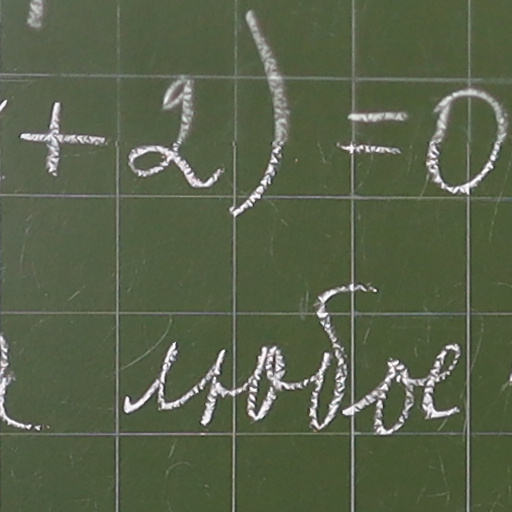 +2)=0
любое